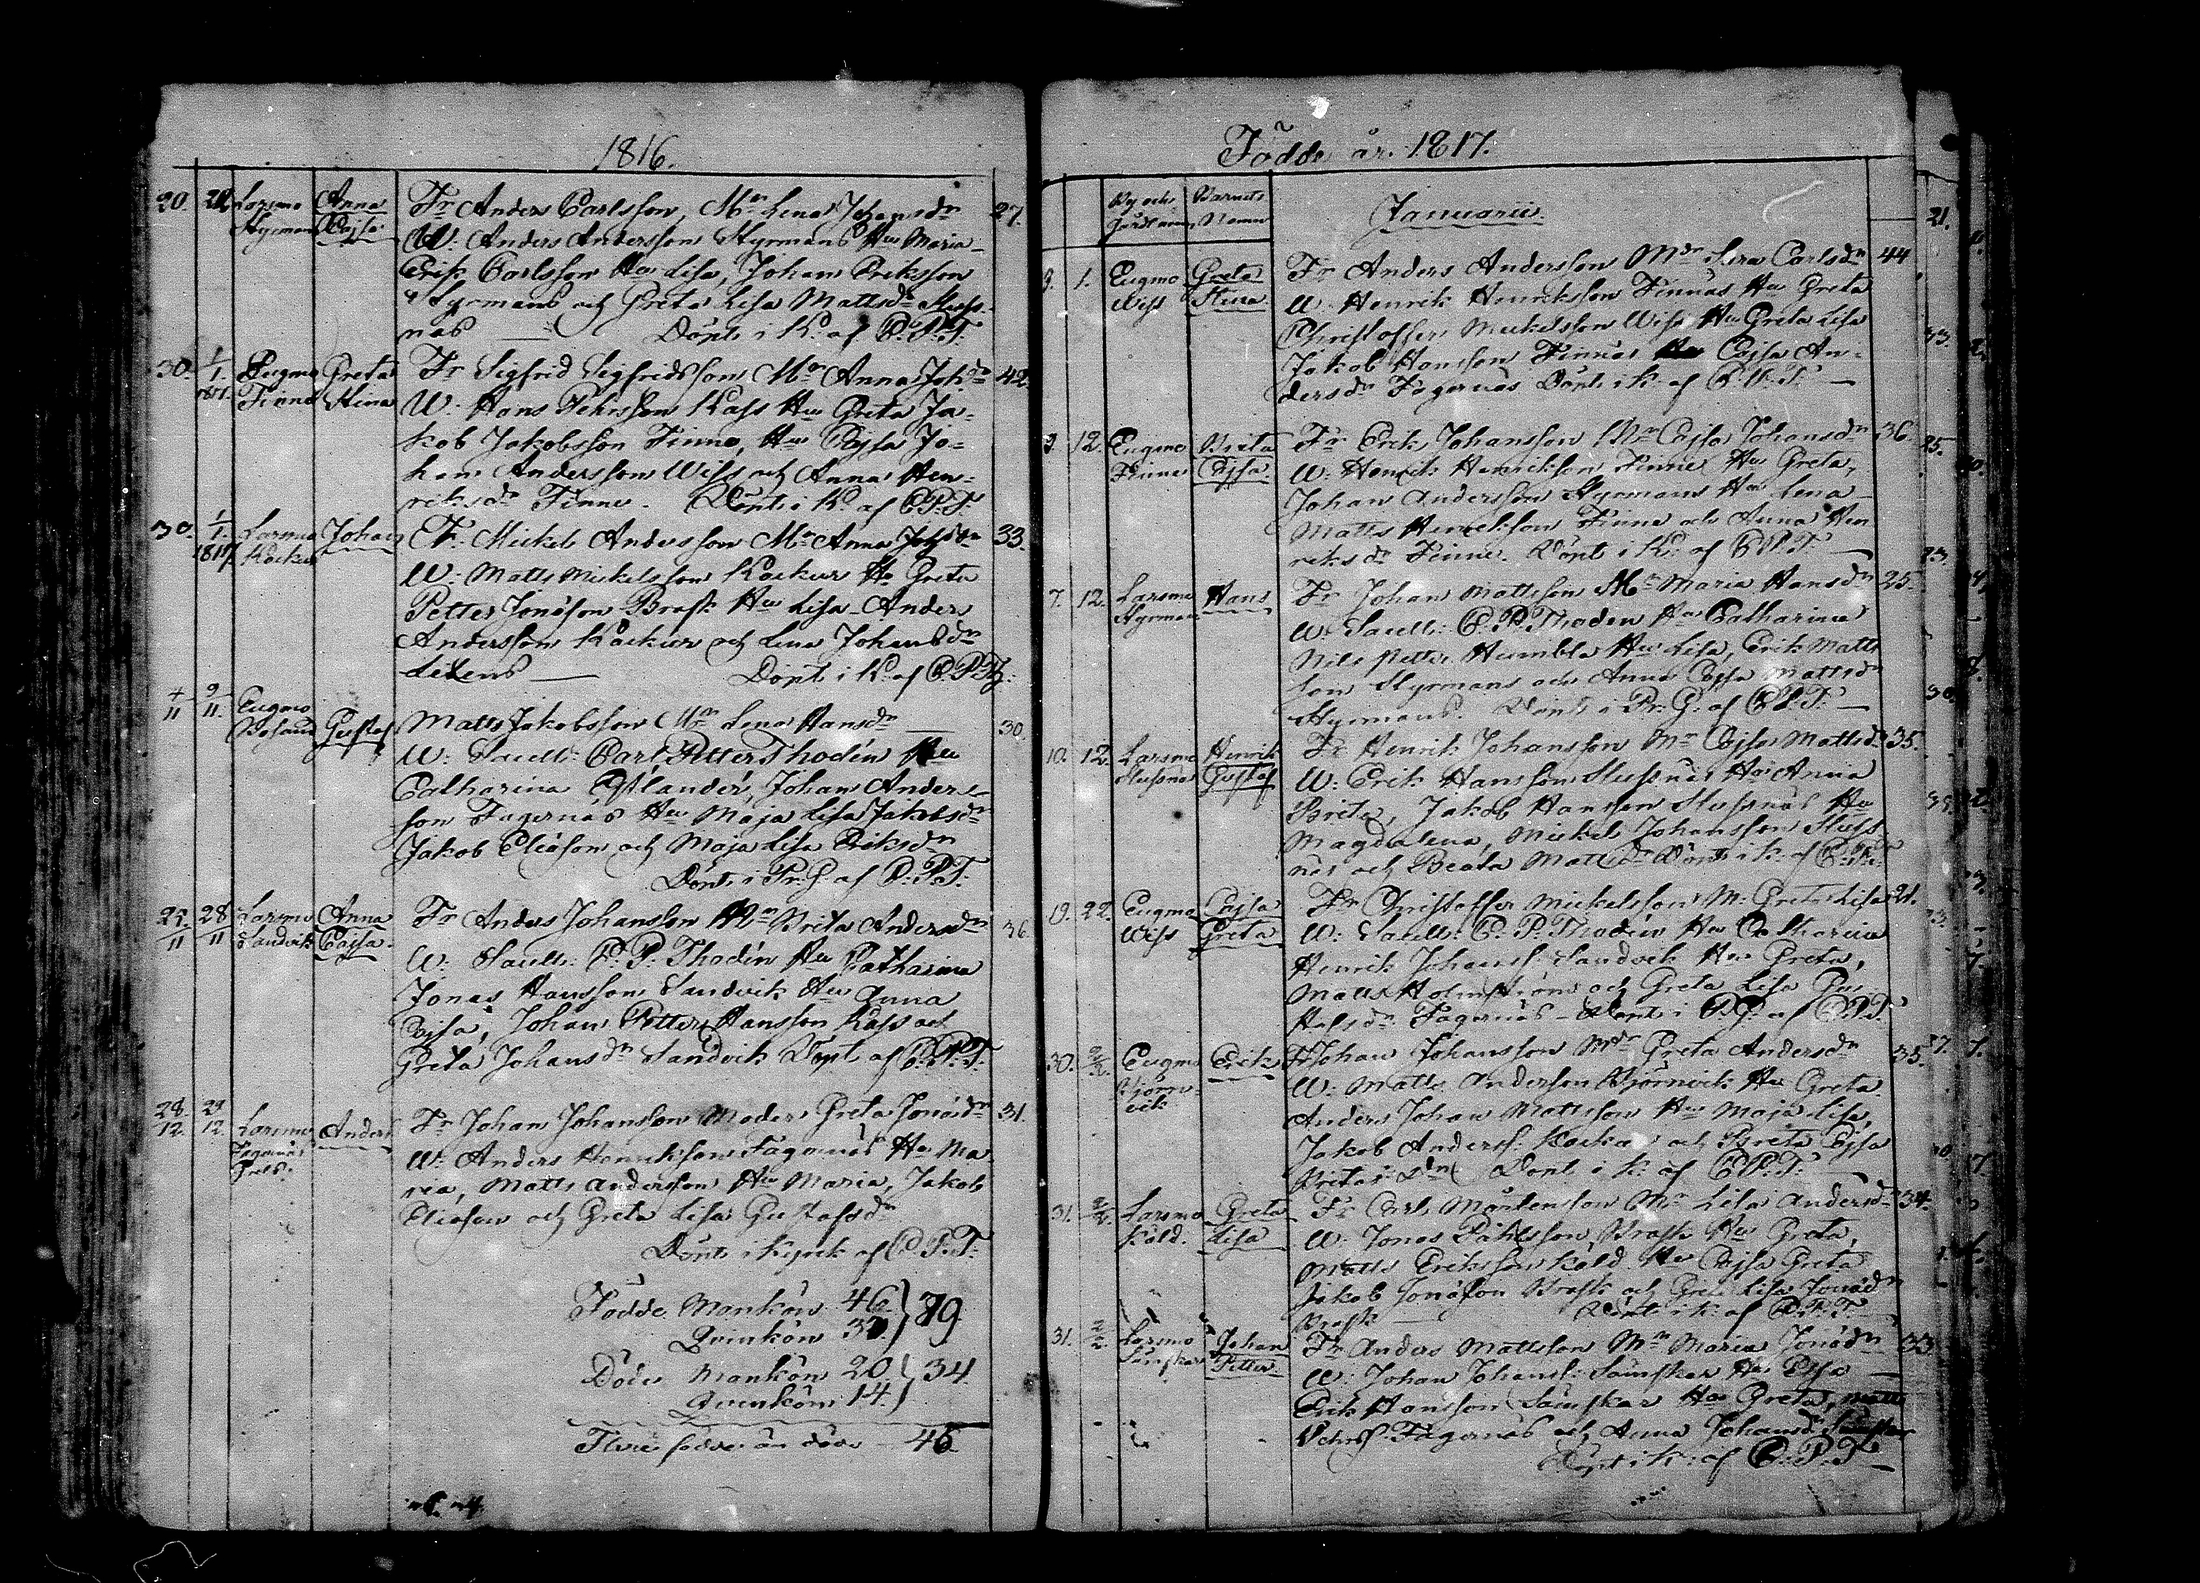 1816.
20. Larsmo Anna Fr Anders Carlsson, Mr Lena Johansdr 27.
Styrmans Cajsa W: Anders Andersson Styrmans Hu Maria
Erik Carlsson Hu Lisa, Johan Eriksson
Styrmans och Greta Lisa Mattsdr Sluss-
näs Döpt i K. af C.P.T.
30. 1/1 Eugmo Greta Fr Sigfrid Sigfridsson Mr Anna Johdr 42.
Finne Stina W: Hans Pehrsson Kass Hu Greta Ja-
kob Jakobsson Finne, Hu Cajsa Jo-
han Andersson Wiss och Anna Hen-
riksdr Finne. Döpt i K. af C.P.T.
30. 1/1 Larsmo Johan Fr. Mickel Andersson Mr Anna 33.
1817. W: Matts Mickelsson Hu Greta
Petter Jonasson Brask Hu Lisa Anders
Andersson och Lena Johansdr
Döpt i K. af C.P.Th:
4/11 9/11. Eugmo
Bosund Gustaf Matts Jakobsson Mr Lena Hansdr 30.
W: Sacell: Carl Petter Thodén Hu
Catharina Estlander, Johan Anders-
son Fagernäs Hu Maja Lisa Jakobsdr
Jakob Eliasson och Maja Lisa Eriksdr
Döpt i Pr: G: af C:P.T:
27/11 28/11 Larsmo Anna Fr Anders Johansson Mr Brita Andersdr 36.
Sandvik Cajsa W: Sacell: C: P: Thodén Hu Catharina
Jonas Hansson Sandvik Hu Anna
Cajsa, Johan Petter Hansson Kass och
Greta Johansdr Sandvik Döpt af C:P.T:
28/12. 29/12. Larsmo Anders Fr Johan Johansson Moder Greta Jonasdr 31.
Fagernäs W: Anders Henriksson Fagernäs Hu Ma
ria, Matts Andersson Hu Maria, Jakob
Eliasson och Greta Lisa Gustafsdr
Döpt i Kyrk af C P.T:
Födde Mankön 46. } 79.
Qvinkön 33.
Döde Mankön 20. } 34.
Qvinkön 14.
Flere födde än döde 45
Födde år. 1817.
By och Barnets
Gårds namn Namn Januarii.
1. Eugmo Greta Fr Anders Andersson Mdr Carlsdr 44
Wiss Stina W: Henrik Henriksson Finnäs Hu Greta
Christoffer Mickelsson Wiss Hu Greta Lisa
Jakob Hansson Finnäs Cajsa An-
dersdr Fagernäs Döpt i K. af C.P.T:
12. Eugmo Brita Fr Erik Johansson Mr Cajsa Johansdr 36.
Finne Cajsa W: Henrik Henriksson Finne Hu Greta,
Johan Andersson Styrmans Hu Lena
Matts Henriksson Finne och Anna Hen
riksdr Finne. Döpt i K: af C.P.T:
7. 12. Larsmo Hans Fr Johan Mattsson Mr Maria Hansdr 25.
Styrmans W: Sacell: C. P. Thodén Hu Catharina
Nils Petter Humbla Hu Lisa, Erik Matts
son Styrmans och Anna Cajsa Mattsdr
Styrmans. Döpt i Pr: G: af C.P.T:
10. 12. Larsmo Henrik Fr Henrik Johansson Mr Cajsa Mattsdr 35.
Slussnäs Gustaf W: Erik Hansson Slussnäs Hu Anna
Brita, Jakob Hansson Slussnäs Hu
Magdalena, Mickel Johansson Sluss
näs och Beata Mattsdr Döpt i K: af C.P.T:
19. 22. Eugmo Cajsa Fr Christoffer Mickelsson Mr Greta Lisa 21.
Wiss Greta W: Sacell: C. P. Thodén Hu Catharina
Henrik Johanss: Sandvik Hu Greta,
Matts Holmström och Greta Lisa Gus-
tafsdr Fagernäs Döpt i P.G. af C.P.T.
30. 2/2. Eugmo Erik Fr Johan Johansson Mdr Greta Andersdr 35.
Björn- W: Matts Andersson Björnvik Hu Greta
vik Anders Johan Mattsson Hu Maja Lisa,
Jakob Anderss: och Greta Cajsa
Döpt i K. af C.P.T:
31. 2/2. Larsmo Greta Fr Carl Mårtensson Mr Lisa Andersdr 34.
Köld. Lisa W: Jonas Påhlsson Brask Hu Greta,
Matts Eriksson Köld Hu Cajsa Greta
Jakob Jonasson Brask och Greta Lisa Jonasdr
Brask Döpt i K: af C.P.T
31. 2/2. Larsmo Johan Fr Anders Mattsson Mr Maria Jonasdr 33
Sämskar Petter W: Johan Johanss: Sämskar Hu Cajsa
Erik Hansson Sämskar Hu Greta, Matts
Pehrss: Fagernäs och Anna Johansdr Sämskar
Döpt i K: af C.P.T